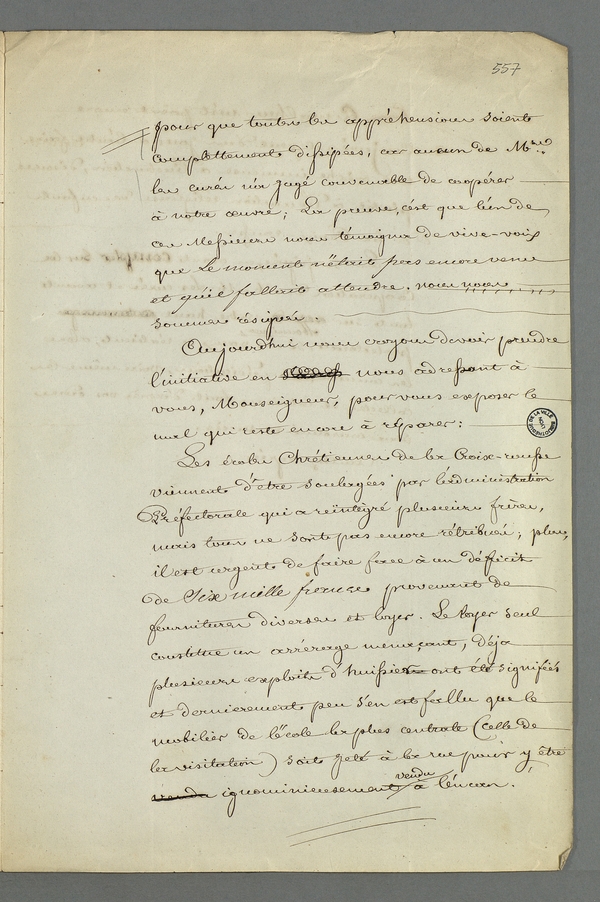 557
pour que toutes les appréhensions soient
complettement dissipées, car aucun de M.rs
les curés n'a jugé convenable de coopérer
à notre œuvre; La preuve, c'est que l'un de
ces Messieurs nous témoigna de vive-voix
que le moment n'était pas encore venu
et qu'il fallait attendre. nous nous
sommes résignés.
Aujourdhui nous croyons devoir prendre
l'initiative en nous adressant à
vous, Monseigneur, pour vous exposer le
mal qui reste encore à réparer:
Les écoles Chrétiennes de la Croix-rousse
viennent d'être soulagées par l'administration
Préfectorale qui a réintégré plusieurs frères,
mais tous ne sont pas encore rétribués; plus,
il est urgent de faire face à un déficit
de Six mille francs provenant de
fournitures diverses et loyer. Le loyer seul
constitue un arrérage menaçant, déja
plusieurs exploits d'huissier ont été signifiés
et dernièrement peu s'en est fallu que le
mobilier de l'école la plus centrale (celle de
la visitation) soit jeté à la rue pour y être
vendu ignominieusement vendu à l'encan.